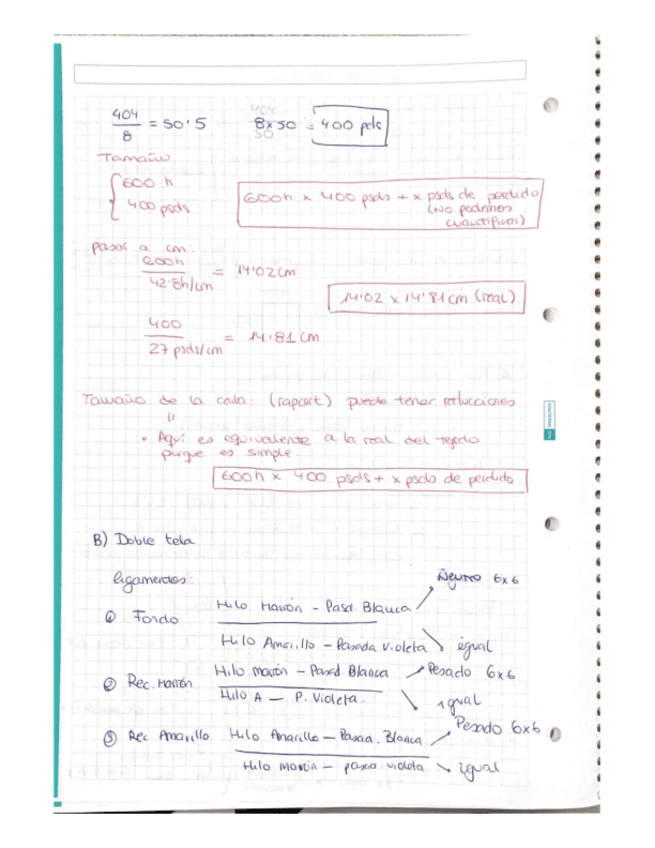 404
404/8 = 50'5 8x50 = 400 pds
50
Tamaño
600 h
400 psds
600h x 400 psds + x psds de perdido
(No podemos cuantificar)
pasar a cm:
600h / 42'8h/cm = 14'02 cm
14'02 x 14'81 cm (real)
400 / 27 psds/cm = 14'81 cm
Tamaño de la carta (raport) puede tener reducciones
"
• Aquí es equivalente a la real del tejido
porque es simple.
600h x 400 psds + x psds de perdido
B) Doble tela
ligamentos:
6x6
① Fondo Hilo Marrón - Pasd Blanca
Hilo Amarillo - Pasada Violeta igual
② Rec. Marrón Hilo marrón - Pasad. Blanca Pesado 6x6
Hilo A - P. Violeta. igual
③ Rec Amarillo Hilo Amarillo - Pasad. Blanca Pesado 6x6
Hilo marrón - pasada violeta igual